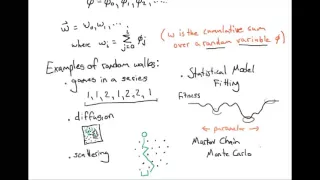 φ = φ₀, φ₁, ...
w⃗ = w₀, w₁, ...
where wᵢ = Σ φⱼ
j=0
(w is the cumulative sum
over a random variable φ)
Examples of random walks:
· games in a series
1, 1, 2, 1, 2, 2, 1
· diffusion
· scattering
· Statistical Model
Fitting
Fitness
parameter
Markov Chain
Monte Carlo